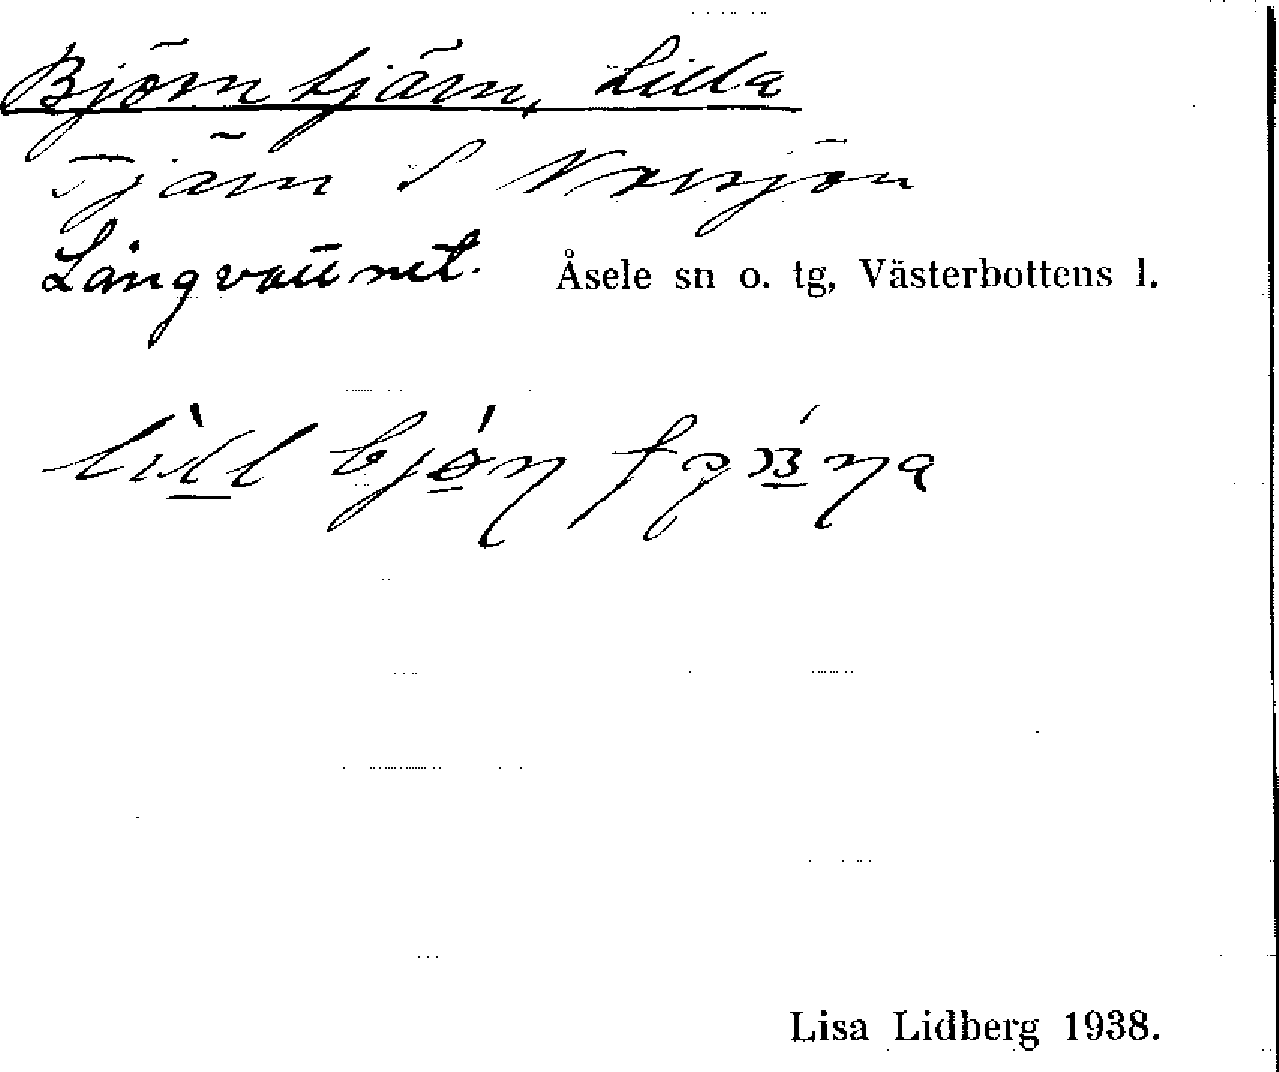 Björntjärn, Lilla
Tjärn S Norrsjön
Långvattnet. Åsele sn o. tg, Västerbottens l.
Lisa Lidberg 1938.